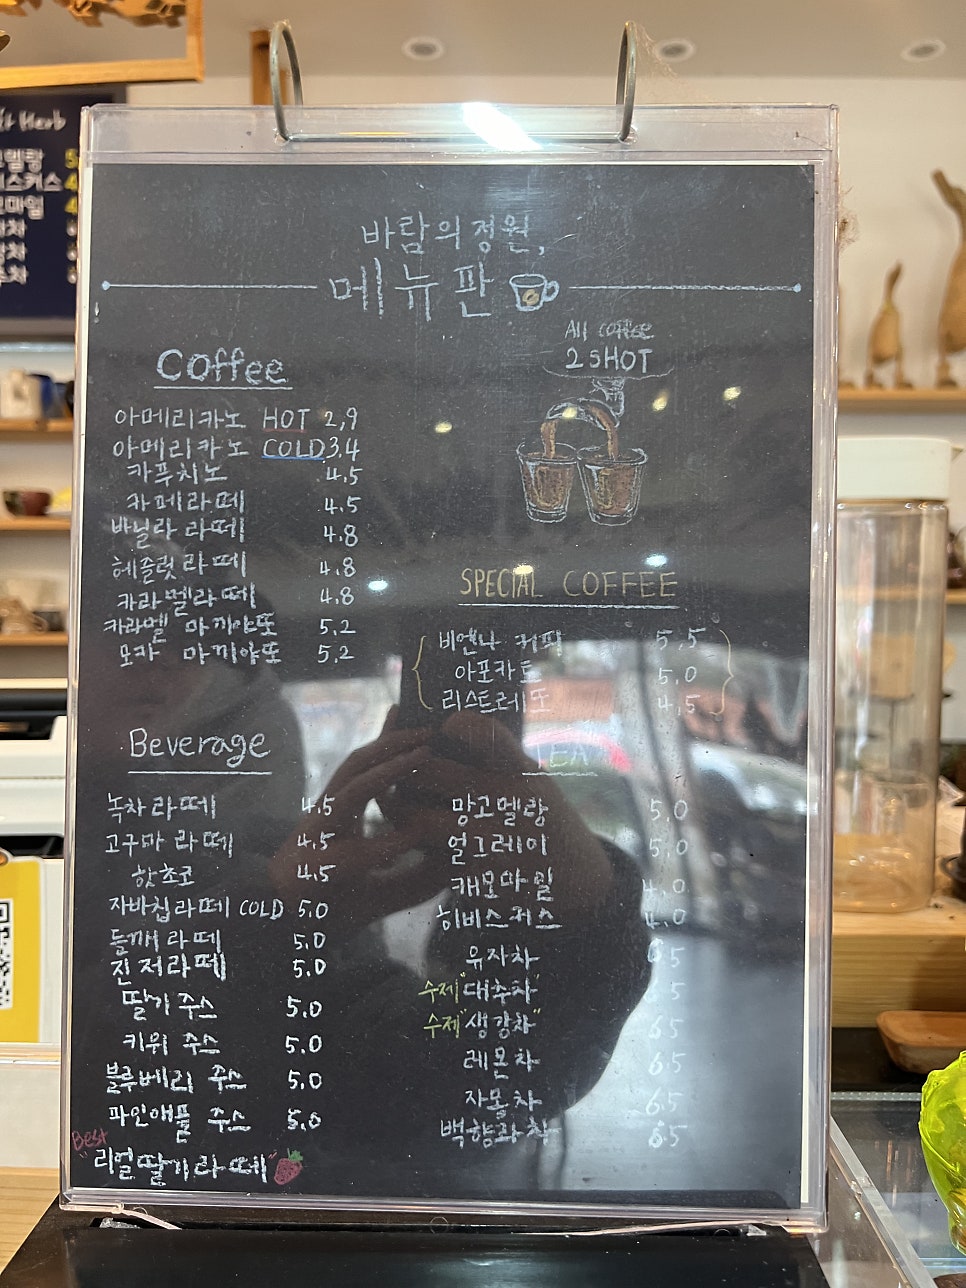 Herb
바람의 정원,
메뉴판
All coffee
2 SHOT
Coffee
아메리카노 HOT 2,9
아메리카노 COLD 3.4
카푸치노 4.5
카페라떼 4.5
바닐라 라떼 4.8
헤즐럿 라떼 4.8
카라멜라떼 4.8
카라멜 마끼야또 5.2
모카 마끼야또 5.2
SPECIAL COFFEE
비엔나 커피 5,5
아포카토 5.0
리스트레또 4,5
Beverage
녹차라떼 4.5
고구마 라떼 4.5
핫초코 4.5
자바칩라떼 COLD 5.0
들깨 라떼 5.0
진저라떼 5.0
딸기 주스 5.0
키위 주스 5.0
블루베리 주스 5.0
파인애플 주스 5.0
Best
"리얼딸기라떼"
TEA
망고멜랑 5.0
얼그레이 5.0
캐모마일 4.0
히비스커스 4.0
유자차 6.5
수제 "대추차" 6.5
수제 "생강차" 6.5
레몬차 6.5
자몽차 6.5
백향과차 6.5